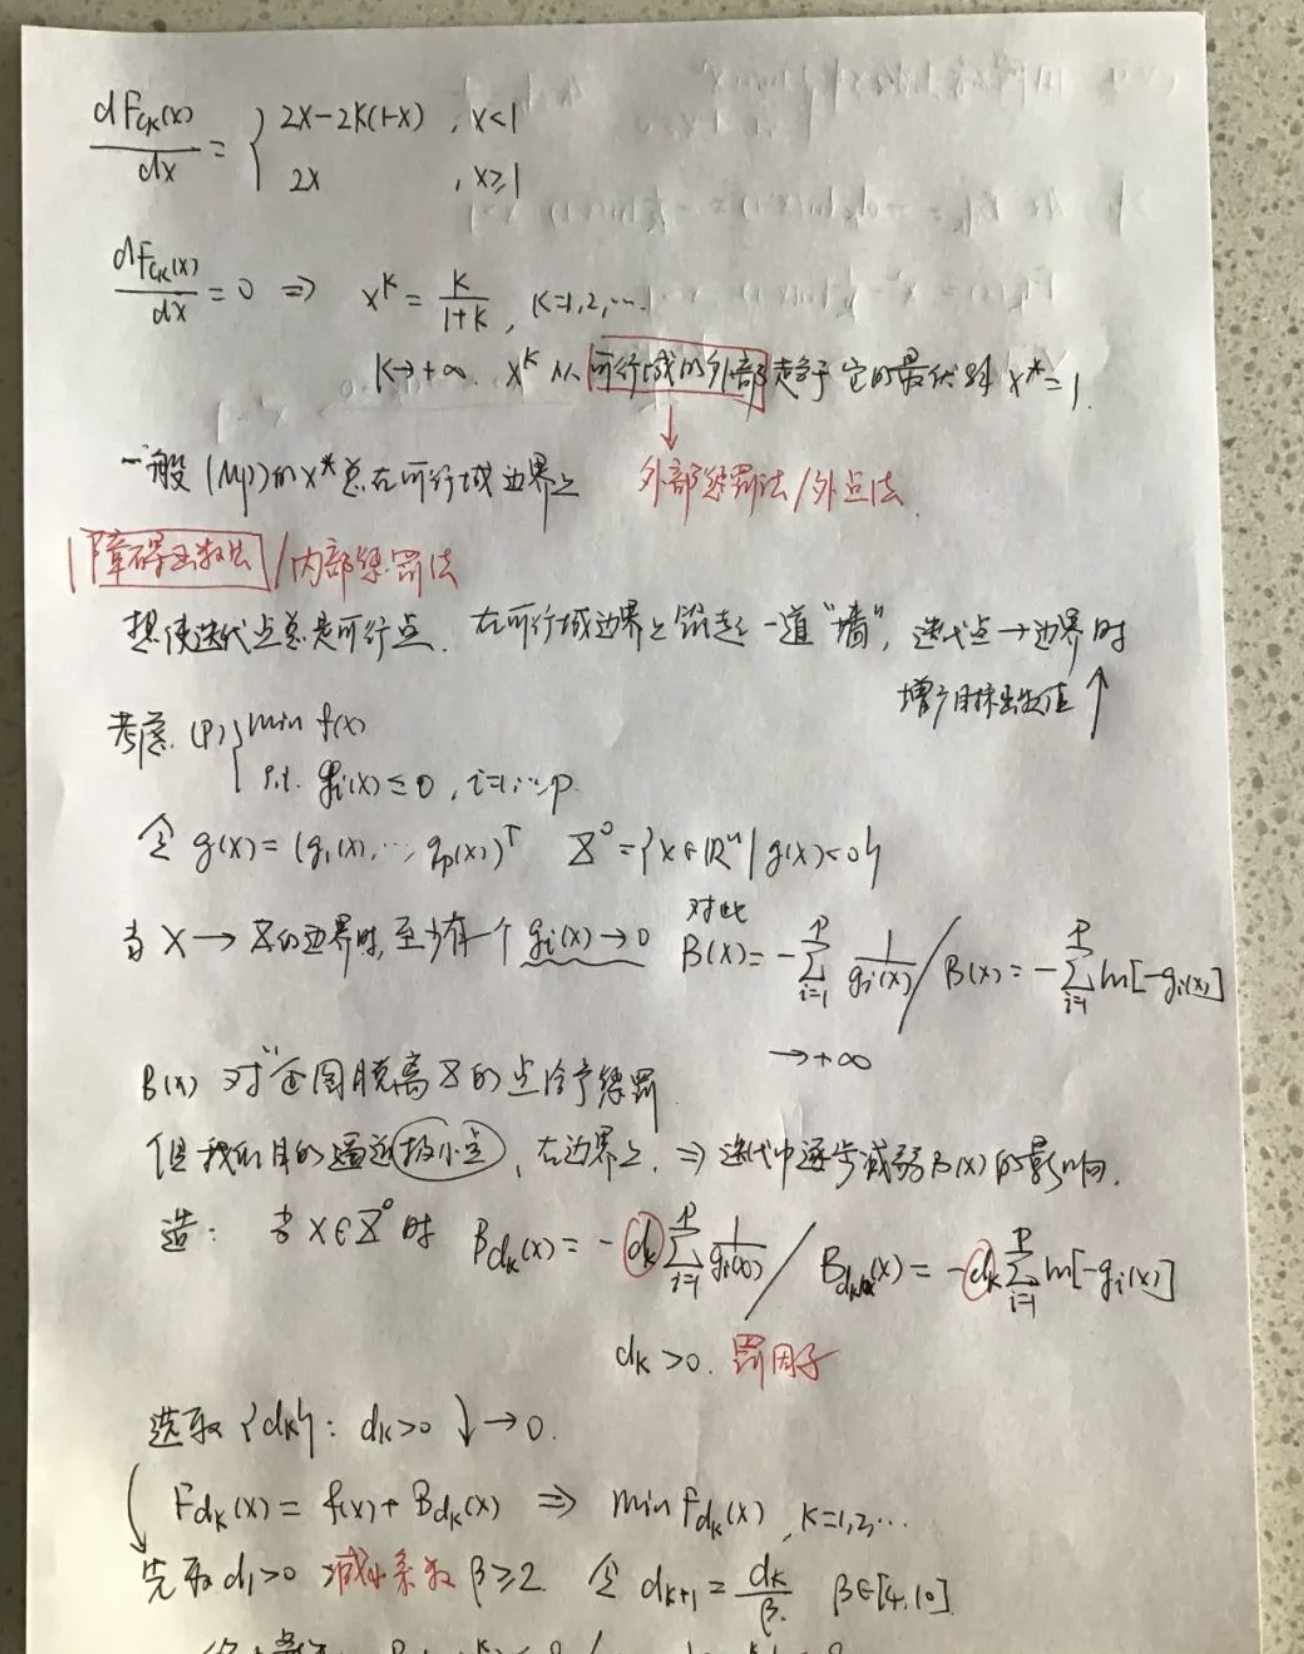 dF_{ck}(x)/dx = { 2x-2k(1-x) , x<1
2x , x≥1
dF_{ck}(x)/dx = 0 ⇒ x^k = k/(1+k) , k=1,2,….
k→+∞. x^k 从 可行域的外部 趋于 它的最优解 x*=1.
一般 (MP)的x*总在可行域边界上 外部惩罚法/外点法
障碍函数法 /内部惩罚法
想使迭代点总是可行点. 在可行域边界上筑起一道“墙”, 迭代点→边界时
目标函数值 ↑
考虑. (P) { min f(x)
s.t. g_i(x)≤0 , i=1,…,p.
令 g(x)=(g_1(x),…, g_p(x))^T X^0={x∈R^n | g(x)<0}
当 X→X的边界时, 至少有一个 g_i(x)→0 对此 B(x)=-∑_{i=1}^{p} 1/g_i(x) / B(x)=-∑_{i=1}^{p} ln[-g_i(x)]
→+∞
B(x) 对“企图脱离X的点给予惩罚
但我们目的逼近极小点, 在边界上, ⇒ 迭代中逐步减弱B(x)的影响.
造: 当X∈X^0时 B_{dk}(x)=-d_k∑_{i=1}^{p} 1/g_i(x) / B_{dk}(x)=-d_k∑_{i=1}^{p} ln[-g_i(x)]
d_k>0. 罚因子
选取{d_k}: d_k>0 ↓→0.
F_{dk}(x)=f(x)+B_{dk}(x) ⇒ min F_{dk}(x) , k=1,2,…
先取d_1>0 减小系数 β≥2. 令 d_{k+1}=d_k/β. β∈[4,10]